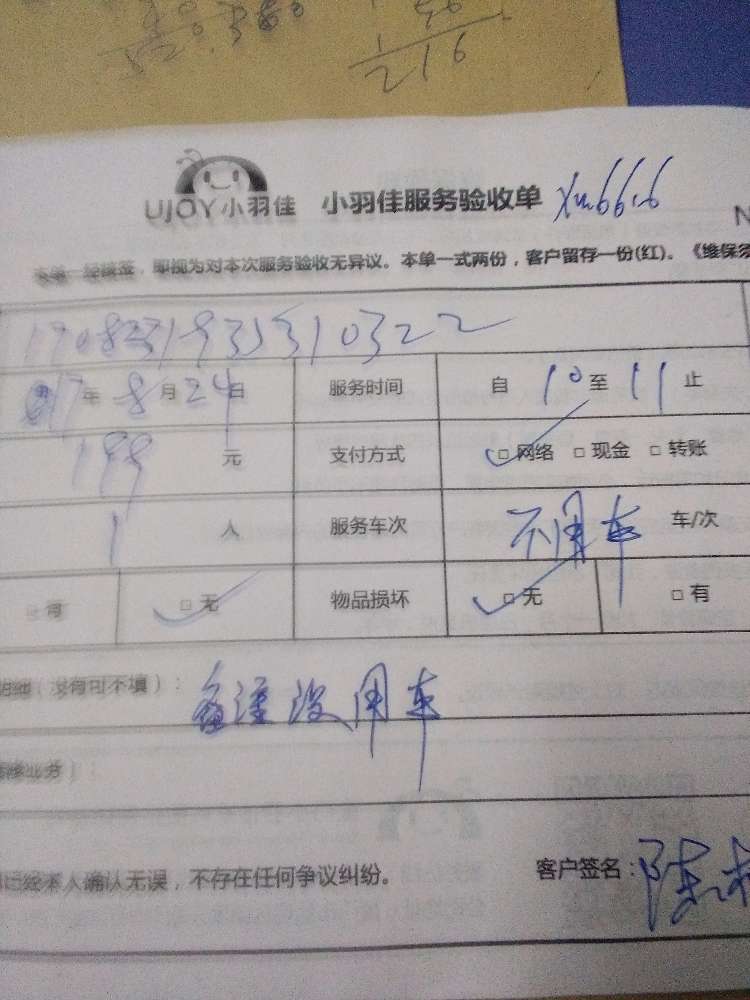 216
UJOY小羽佳 小羽佳服务验收单
本单一经核签，即视为对本次服务验收无异议。本单一式两份，客户留存一份(红)。《维保须
年 8 月 24 日 服务时间 自 10 至 11 止
199 元 支付方式 □ 网络 □ 现金 □ 转账
1 人 服务车次 不用车 车/次
□ 有 □ 无 物品损坏 □ 无 □ 有
（没有可不填）：
备注没用车
本人确认无误，不存在任何争议纠纷。 客户签名：陈